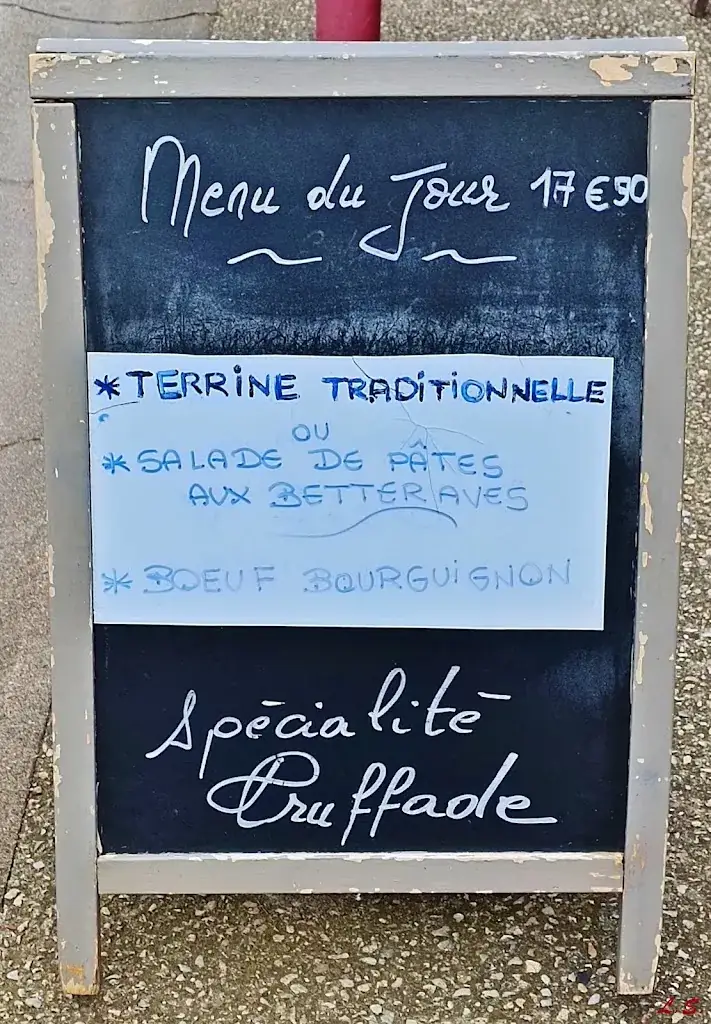 Menu du Jour 17€90
* TERRINE TRADITIONNELLE
OU
* SALADE DE PÂTES
AUX BETTERAVES
* BOEUF BOURGUIGNON
Spécialité
Truffade
L S